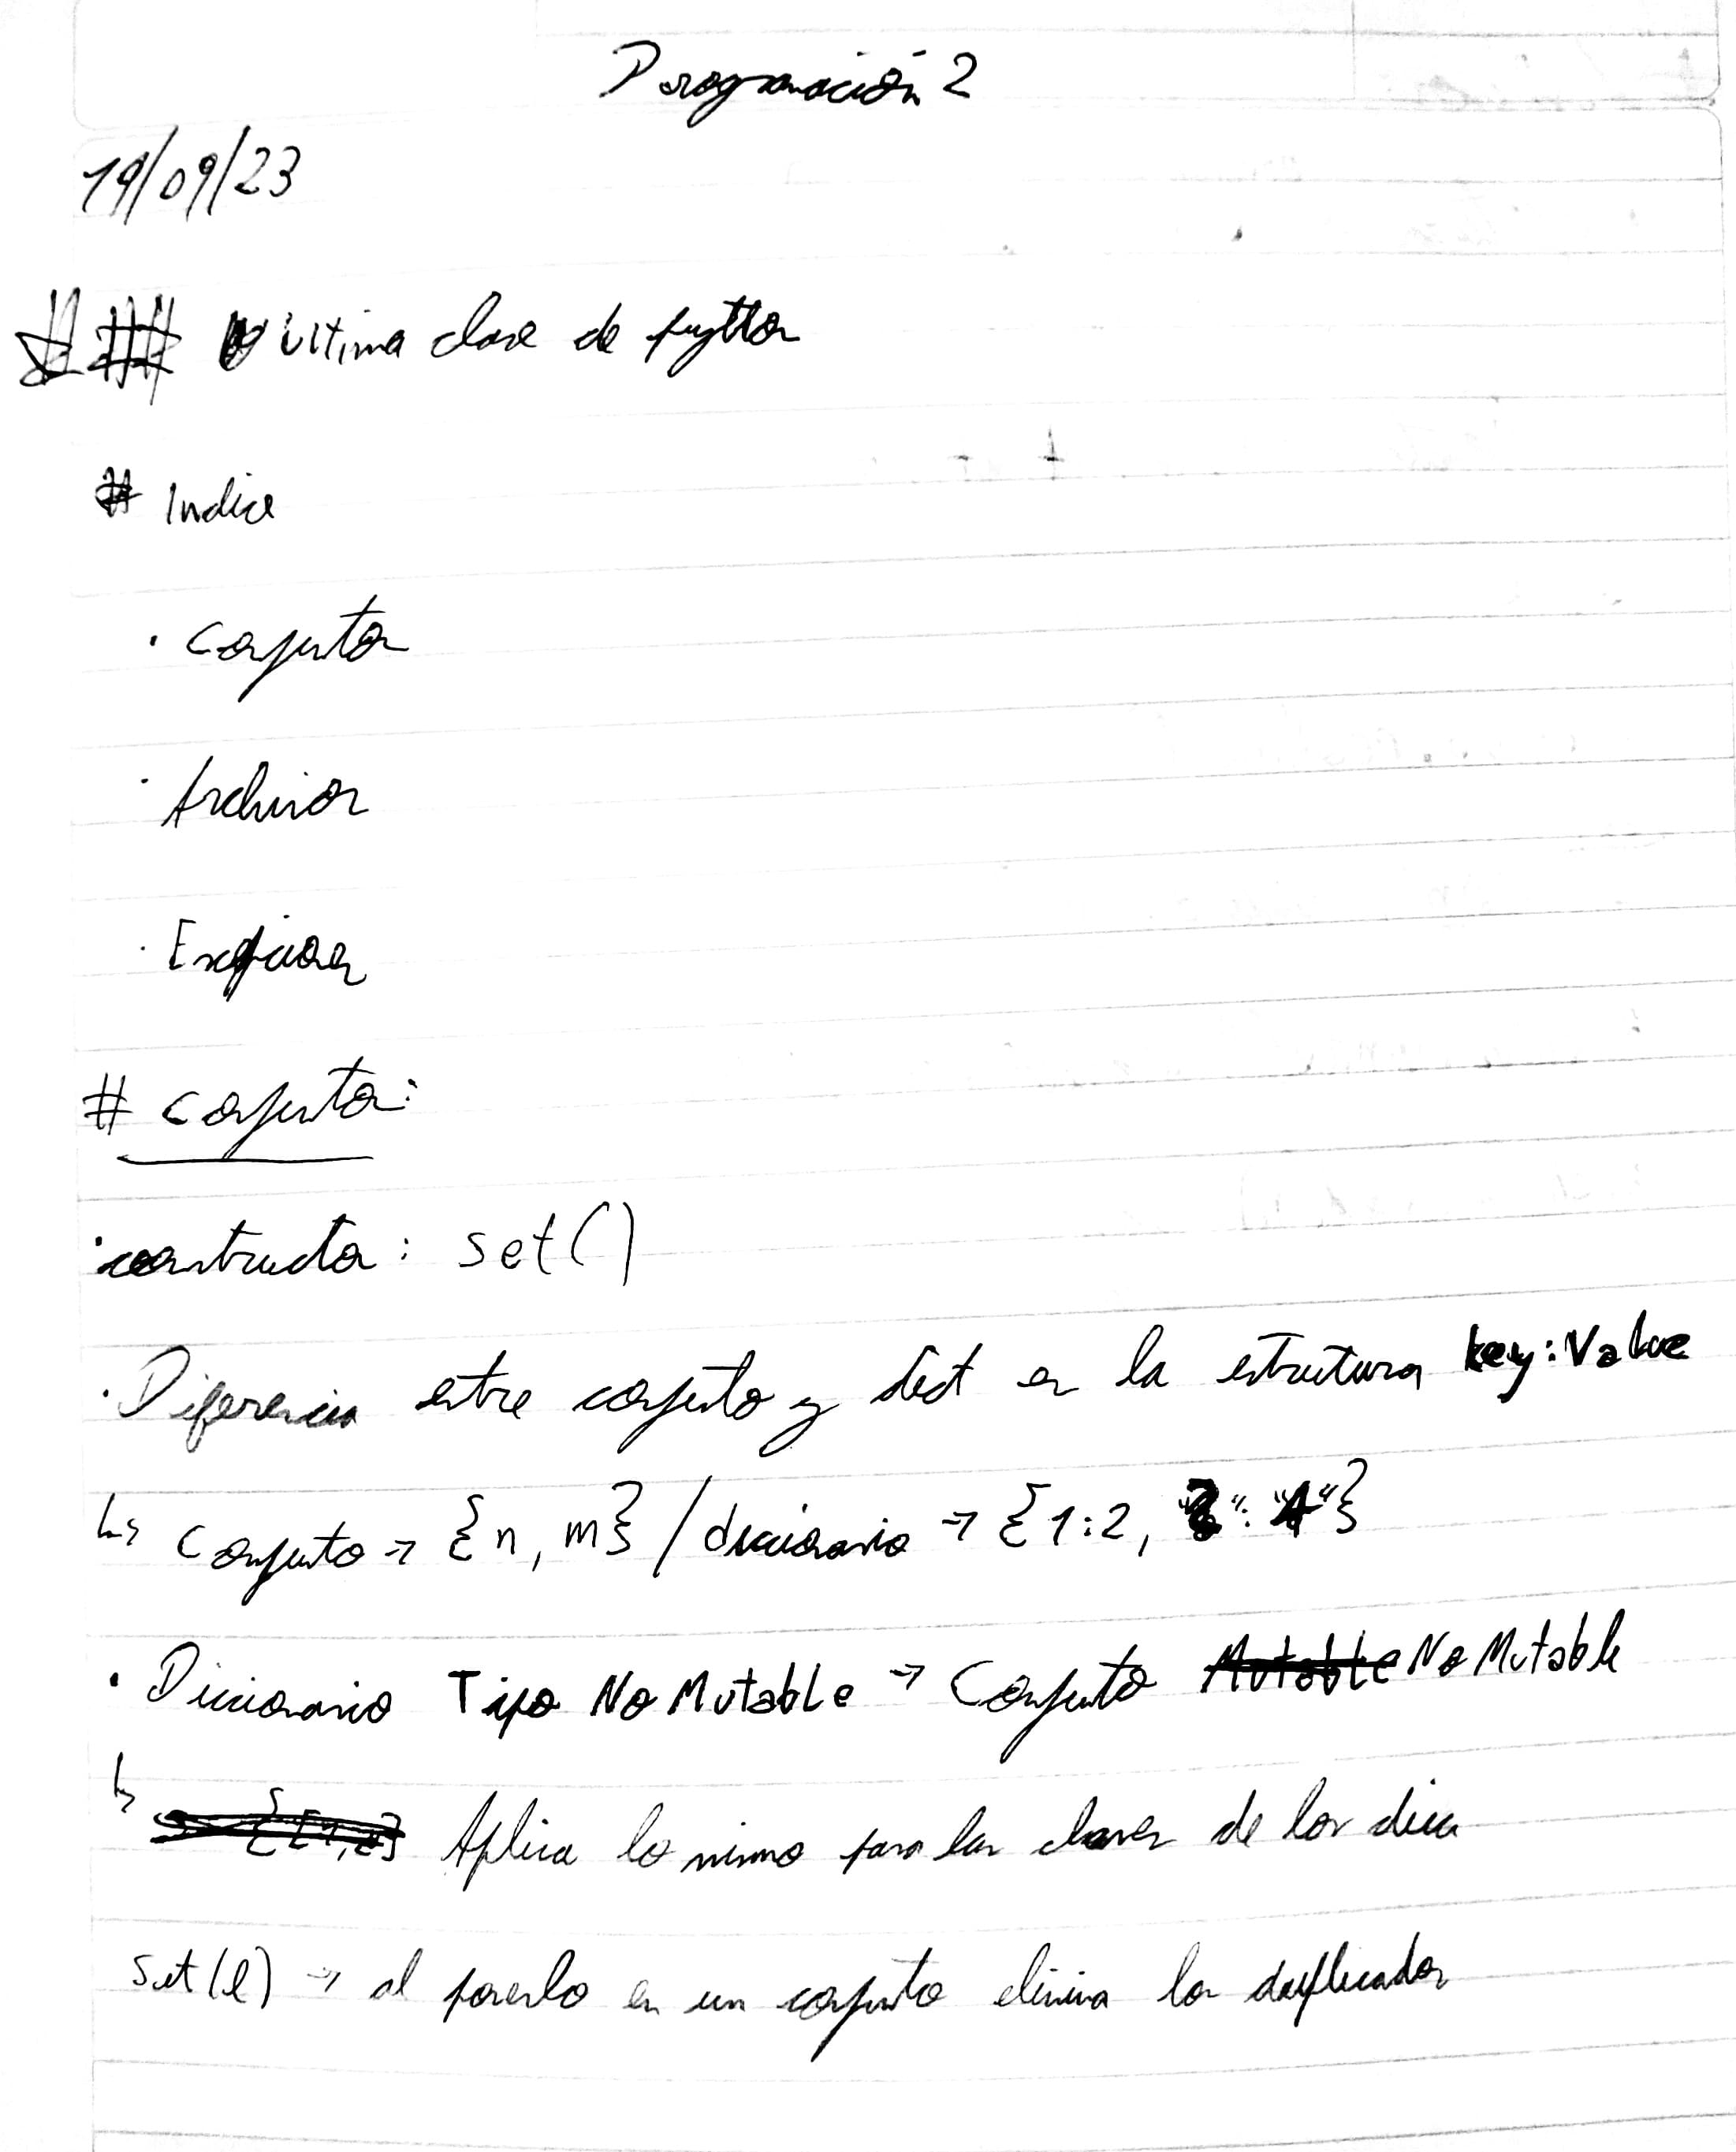 Programación 2
19/09/23
## última clase de python
# Indice
· Conjuntos
· Archivos
· Excepciones
# Conjuntos:
· constructor: set()
· Diferencia entre conjunto y dict es la estrutura key:Value
↳ Conjunto → {n, m} / diccionario → {1:2, "3":"4"}
· Diccionario Tipo No Mutable → Conjunto No Mutable
↳ Aplica lo mismo para las claves de los dicc
set(l) → al ponerlo en un conjunto elimina los duplicados